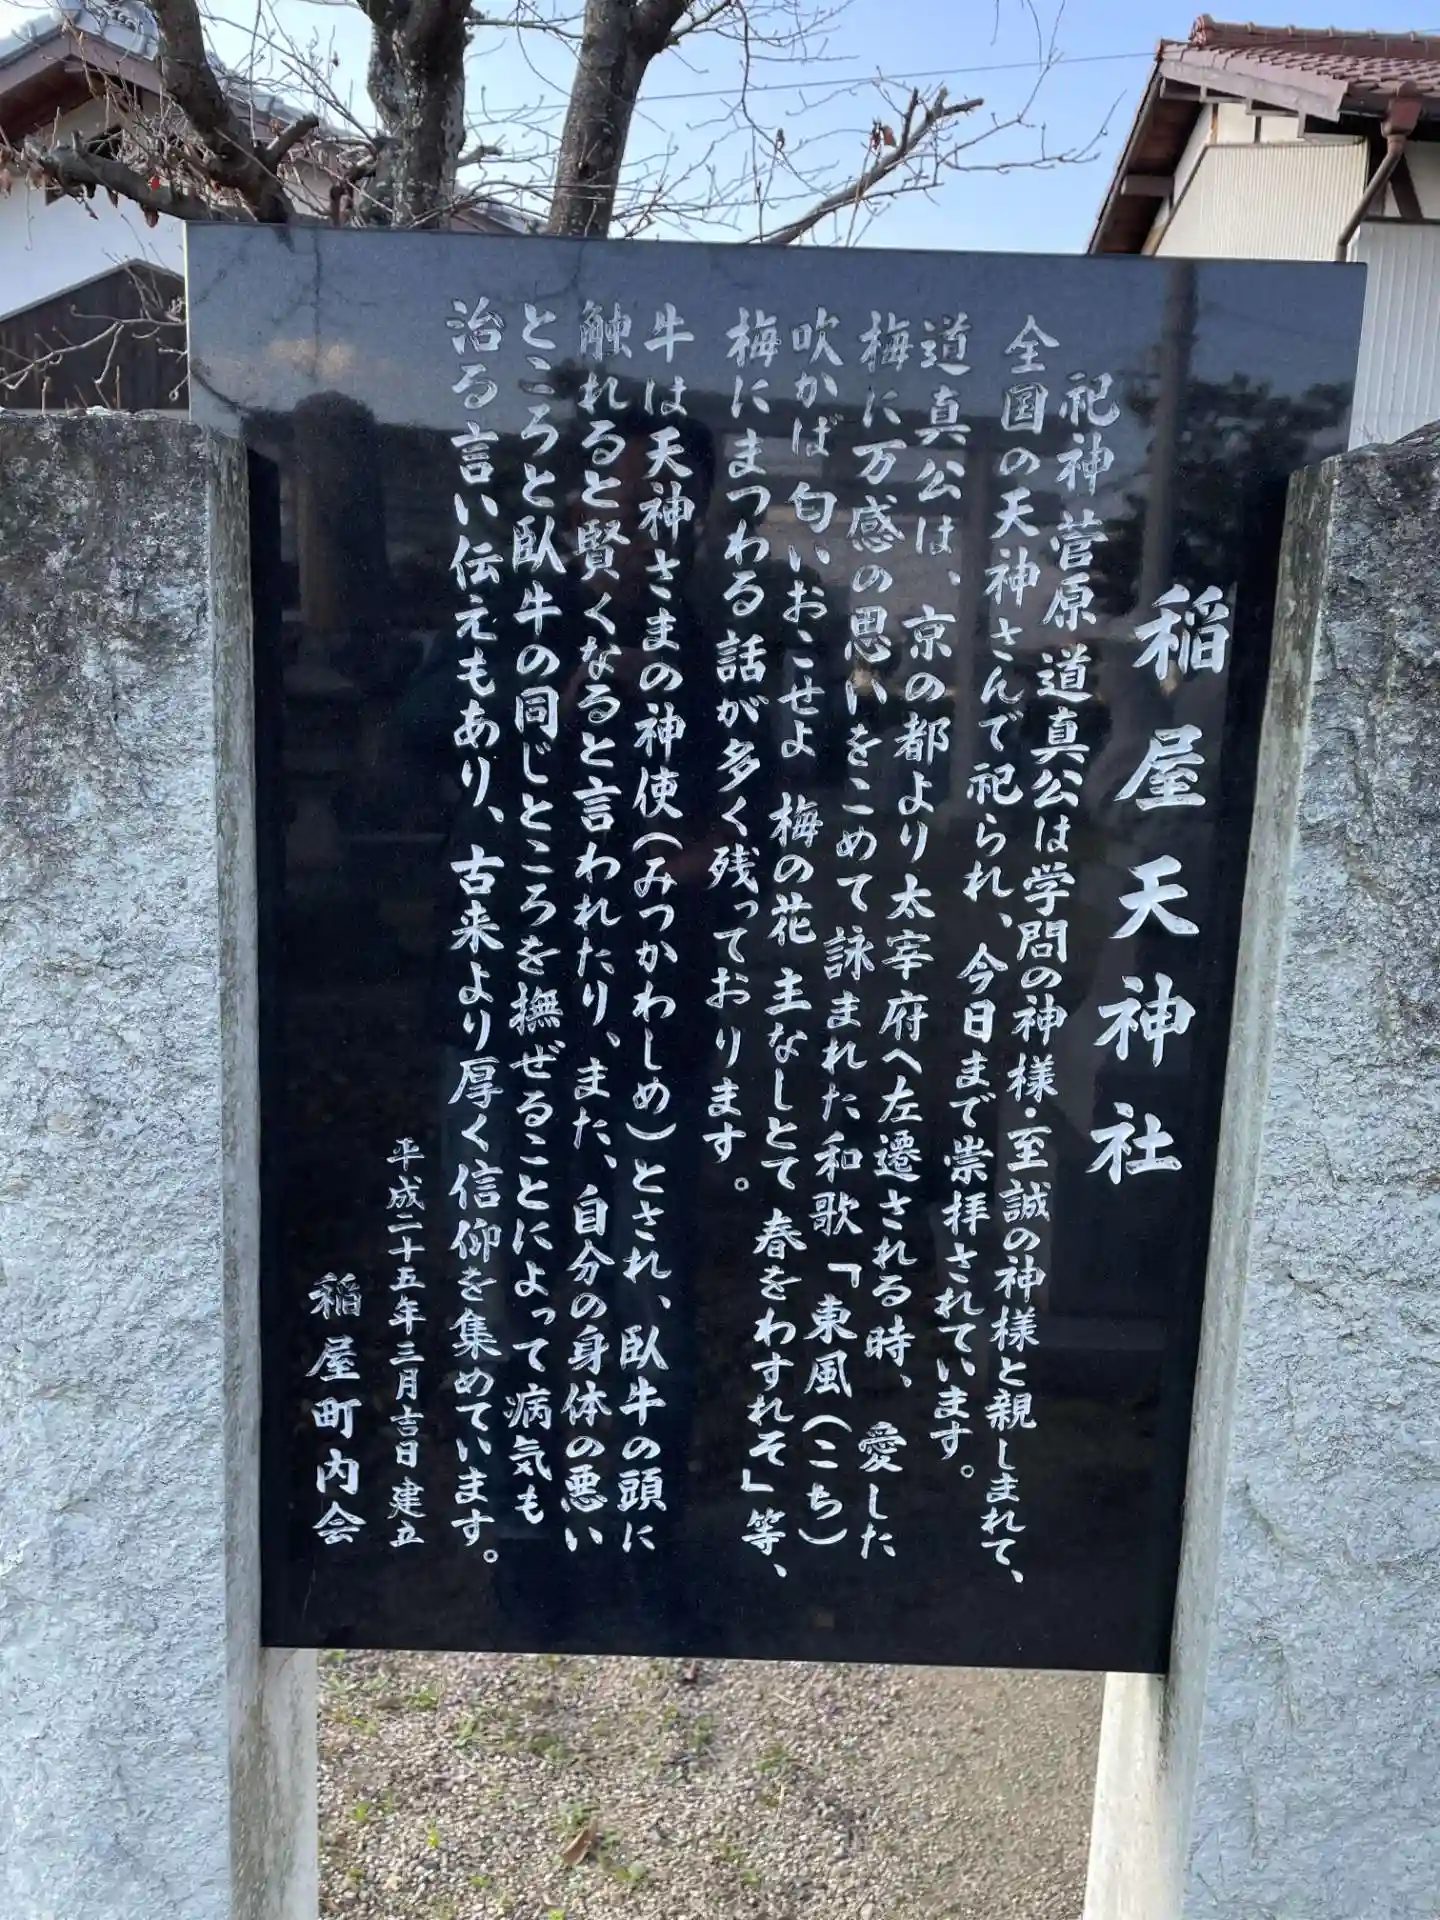 稲屋天神社
祀神 菅原 道真公は学問の神様・至誠の神様と親しまれて、
全国の天神さんで祀られ、今日まで崇拝されています。
道真公は、京の都より太宰府へ左遷される時、愛した
梅に万感の思いをこめて詠まれた和歌「東風(こち)
吹かば匂いおこせよ 梅の花 主なしとて 春をわすれそ」等、
梅にまつわる話が多く残っております。
牛は天神さまの神使(みつかわしめ)とされ、臥牛の頭に
触れると賢くなると言われたり、また、自分の身体の悪い
ところと臥牛の同じところを撫ぜることによって病気も
治る言い伝えもあり、古来より厚く信仰を集めています。
平成二十五年三月吉日 建立
稲屋町内会